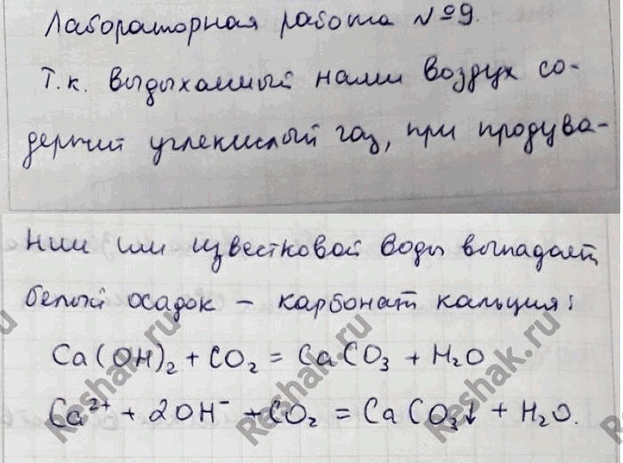 Лабораторная работа №9.
Т.к. выдыхаемый нами воздух со-
держит углекислый газ, при продува-
нии им известковой воды выпадает
белый осадок – карбонат кальция:
Ca(OH)₂ + CO₂ = CaCO₃ + H₂O
Ca²⁺ + 2OH⁻ + CO₂ = CaCO₃↓ + H₂O.
Reshak.ru
Reshak.ru
Reshak.ru